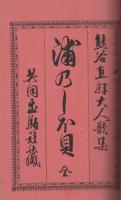 熊谷直好大人歌集
浦乃しほ貝 全
共同出版社蔵